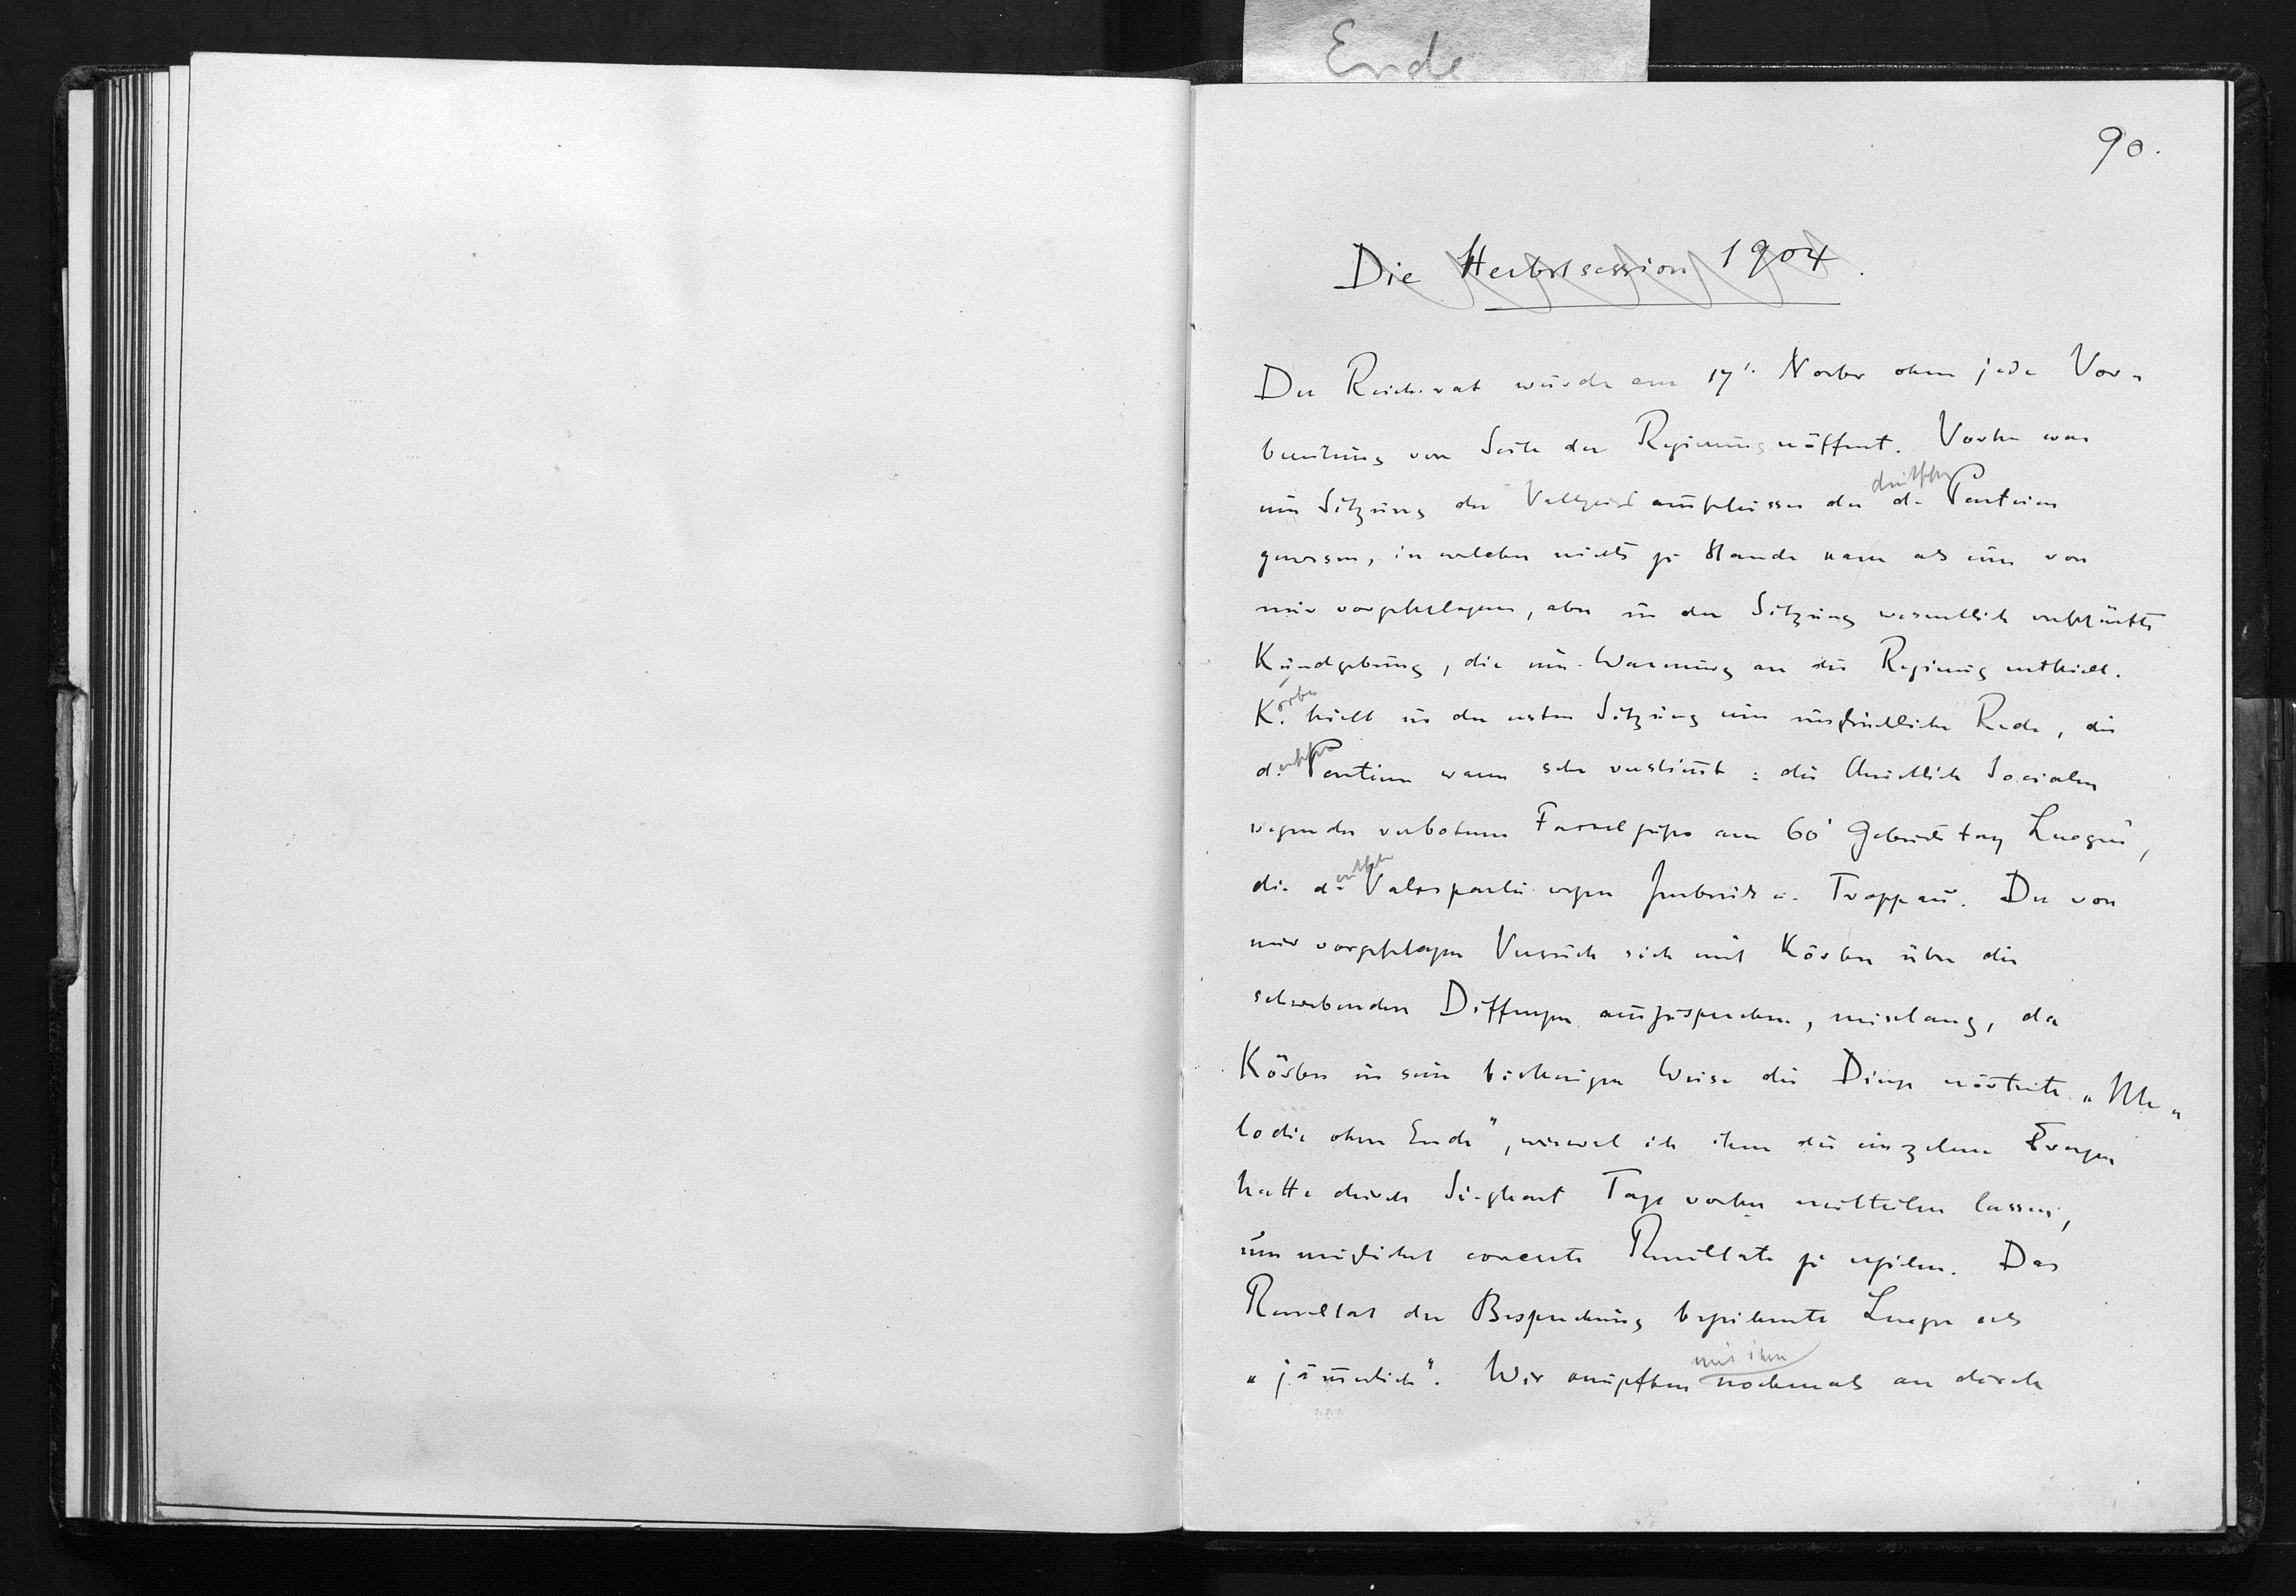 Ende
90.
Die Herbstsession 1904.
Der Reichsrat wurde am 17t. Novbr ohne jede Vor-
bereitung von Seite der Regierung eröffnet. Vorher war
eine Sitzung der Vollzugsausschüsse der d. deutschen Parteien
gewesen, in welcher nichts zu Stande kam als eine von
mir vorgeschlagene, aber in der Sitzung wesentlich verschärfte
Kundgebung, die eine Warnung an die Regierung enthielt.
Körber hielt in der ersten Sitzung eine Rede, die
deutschen Parteien waren sehr verstimt: die Christlich Socialen
wegen des verbotenen Fackelzuges am 60t Geburtstag Luegers,
die deutsche Volkspartei wegen Innsbruck u. Troppau. Der von
mir vorgeschlagene Versuch sich mit Körber über die
schwebenden Differenzen auszusprechen, mislang, da
Körber in seiner bisherigen Weise die Dinge erörterte „Me-
lodie ohne Ende", wiewol ich ihm die einzelnen Fragen
hatte durch Sieghart Tags vorher mitteilen lassen,
um möglichst concrete Resultate zu erzielen. Das
Resultat der Besprechung bezeichnete Lueger als
„jämerlich". Wir knüpften mit ihm nochmals an durch